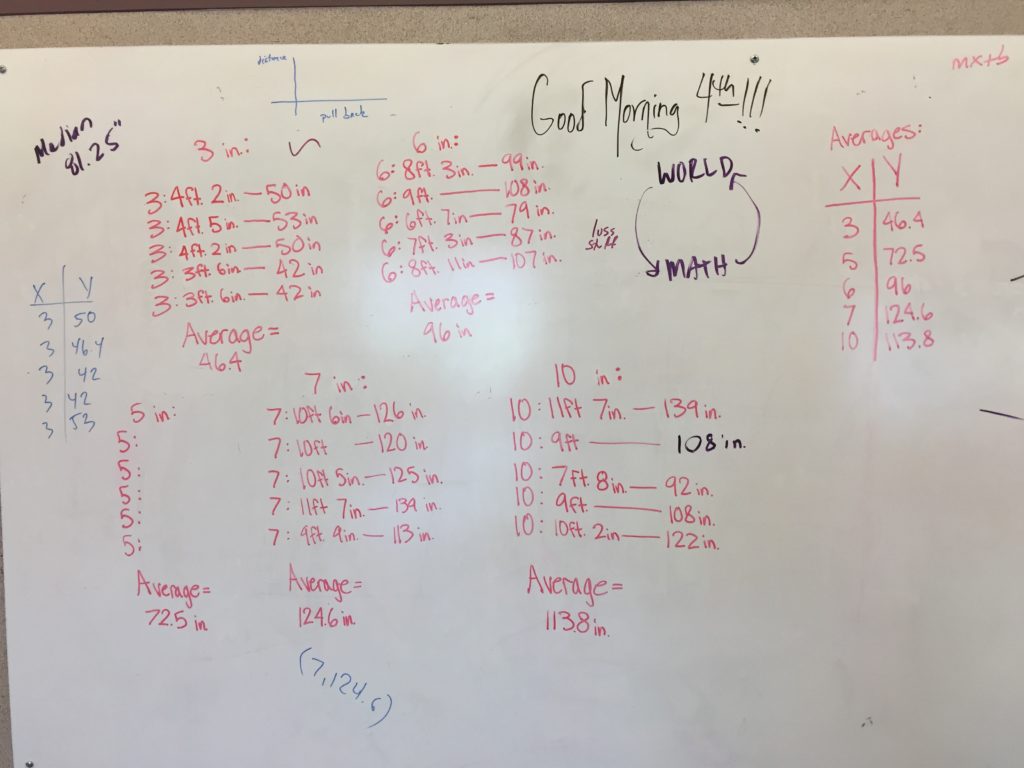 mx+b
distance
pull back
Good Morning 4th!!!
Median
81.25"
3 in:
3: 4ft. 2in — 50in
3: 4ft. 5in — 53in
3: 4ft. 2in — 50in
3: 3ft 6in — 42in
3: 3ft. 6in. — 42in
Average =
46.4
6 in:
6: 8ft. 3in. — 99in.
6: 9ft. — 108in.
6: 6ft. 7in — 79in.
6: 7ft. 3in — 87in.
6: 8ft. 11in — 107in.
Average =
96 in
WORLD
MATH
Averages:
X Y
3 46.4
5 72.5
6 96
7 124.6
10 113.8
X Y
3 50
3 46.4
3 42
3 42
3 53
5 in:
5:
5:
5:
5:
5:
Average =
72.5 in
7 in:
7: 10ft 6in — 126in.
7: 10ft — 120in.
7: 10ft 5in. — 125in.
7: 11ft 7in. — 139in.
7: 9ft 9in. — 113in.
Average =
124.6in
(7,124.6)
10 in:
10: 11ft 7in. — 139in.
10: 9ft — 108in.
10: 7ft 8in. — 92in.
10: 9ft — 108in.
10: 10ft. 2in — 122in.
Average =
113.8in.